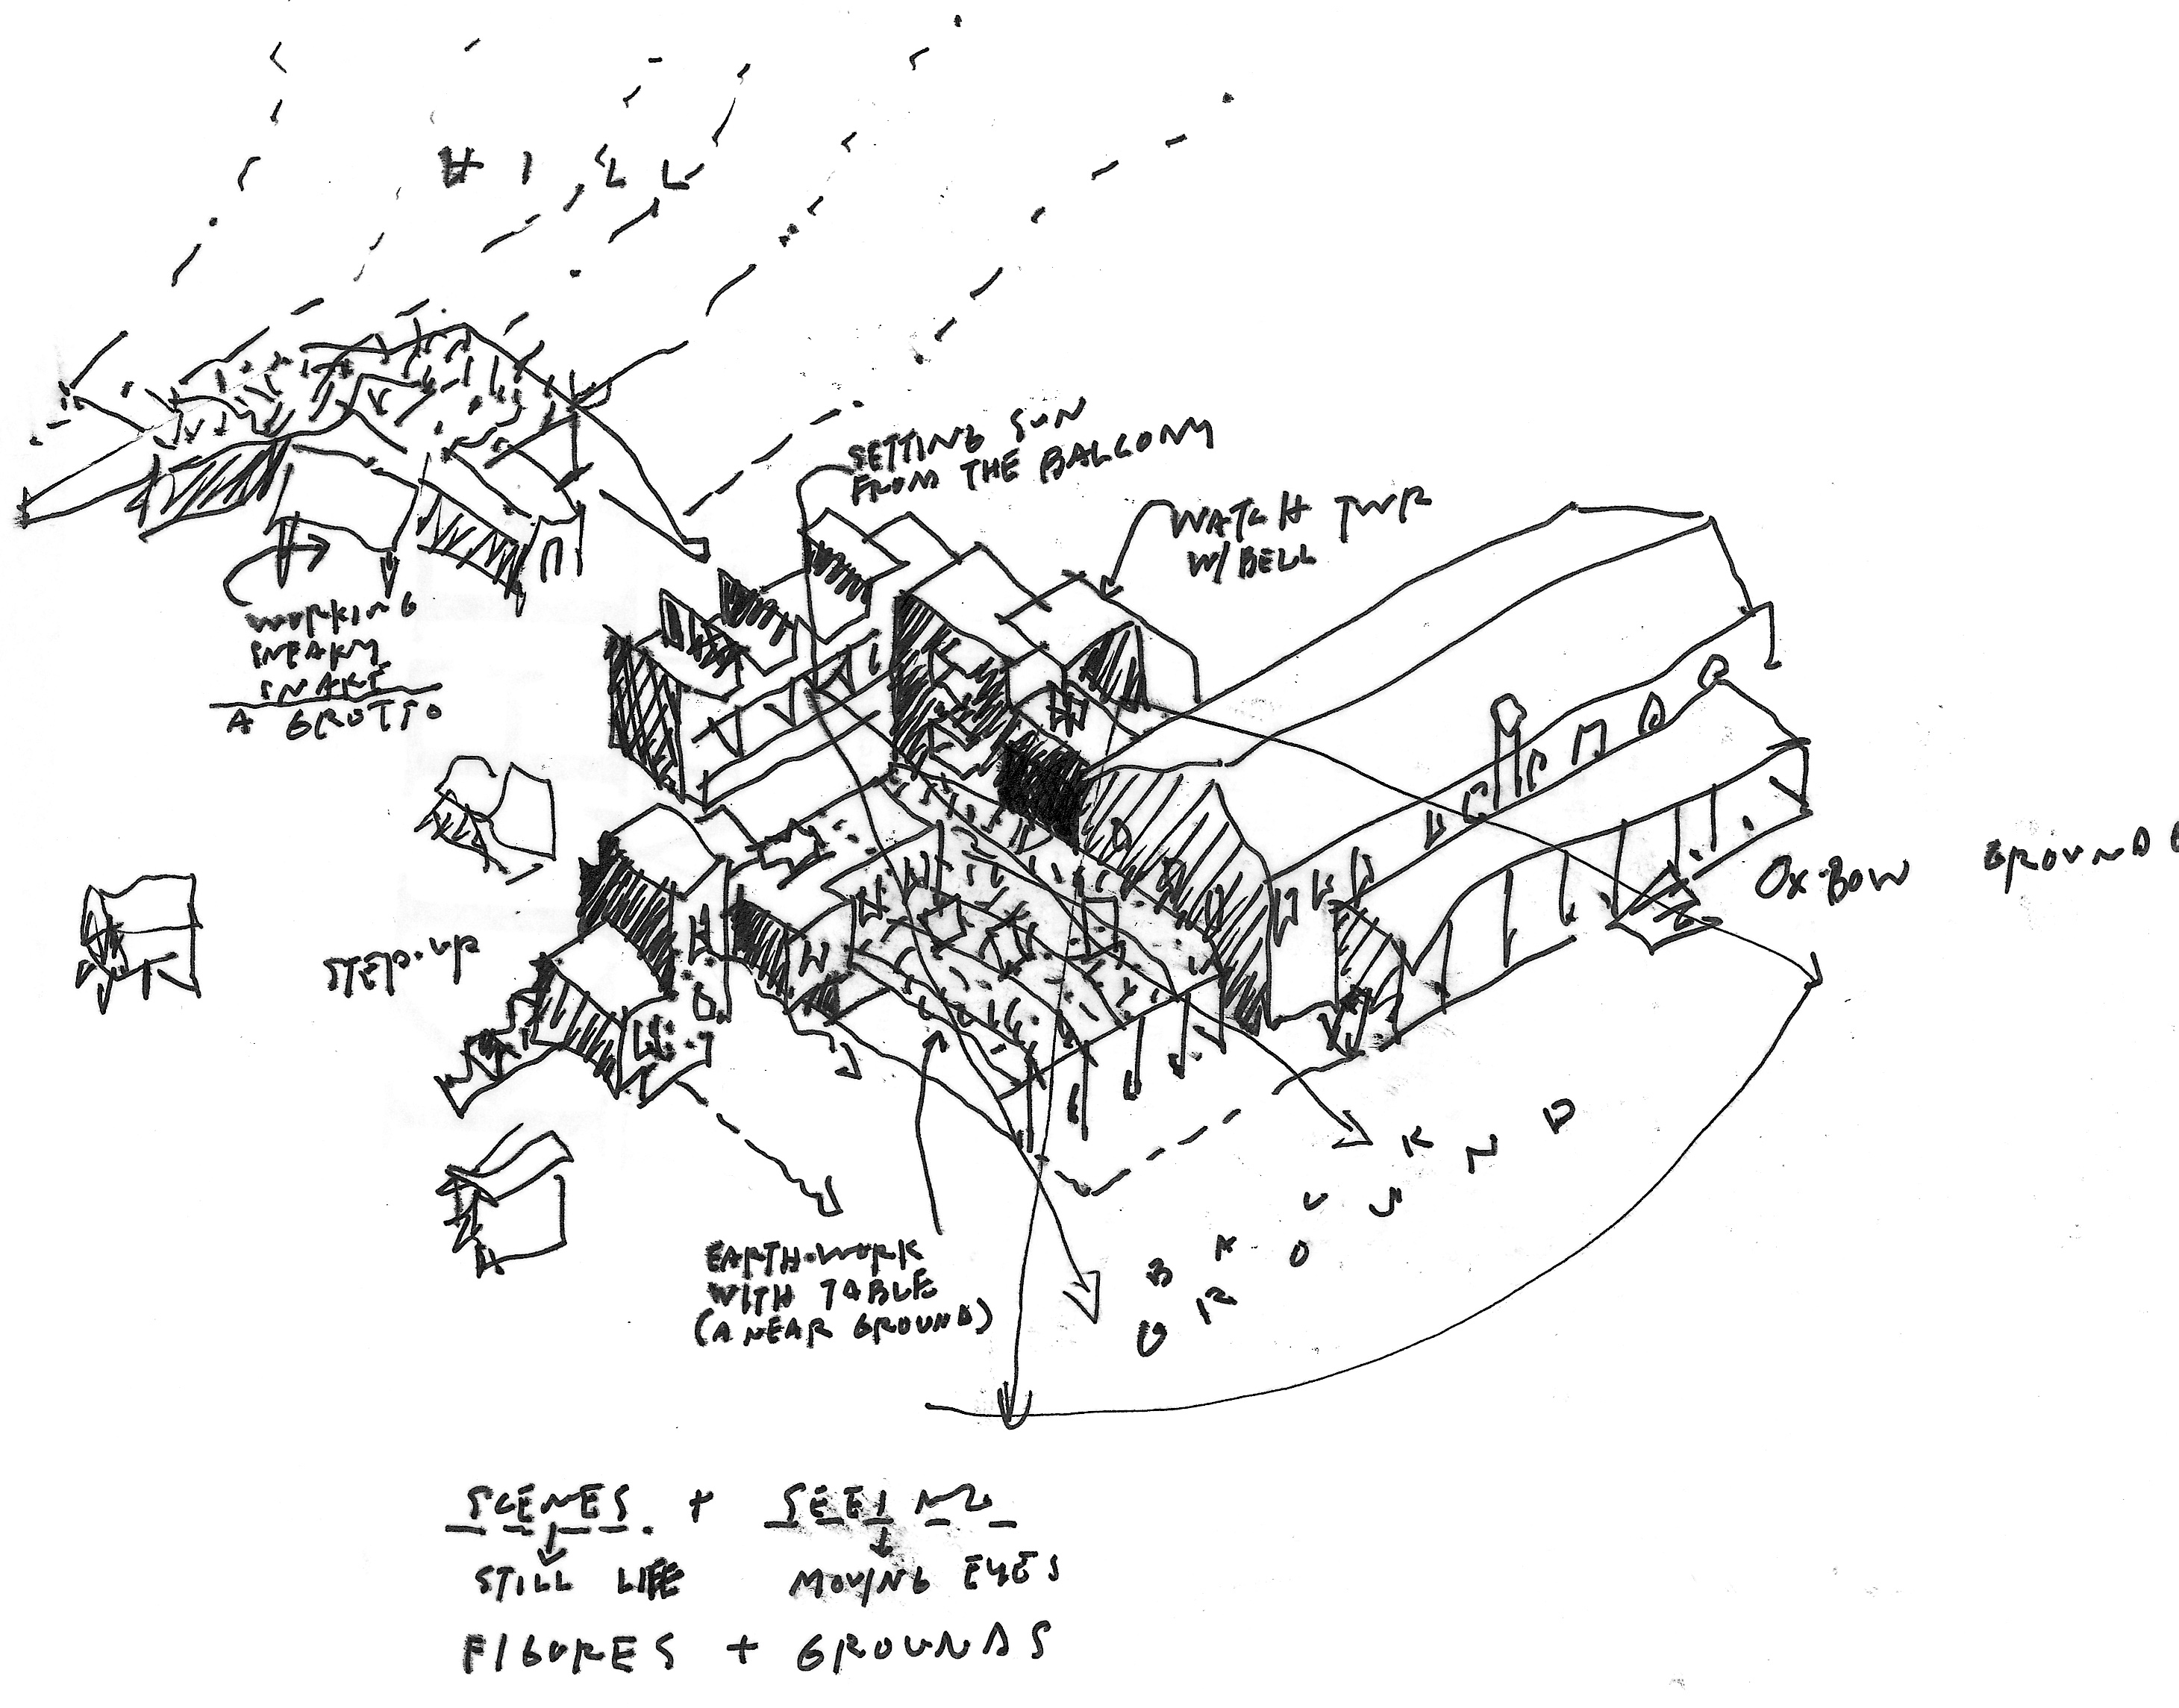 HILL
SETTING SUN
FROM THE BALCONY
WATCH TWR
W/ BELL
WORKING
SNEAKY
SNAKE
A GROTTO
OX-BOW
GROUND
STEP-UP
EARTH-WORK
WITH TABLE
(A NEAR GROUND)
SCENES + SEEING
STILL LIFE MOVING EYES
FIGURES + GROUNDS